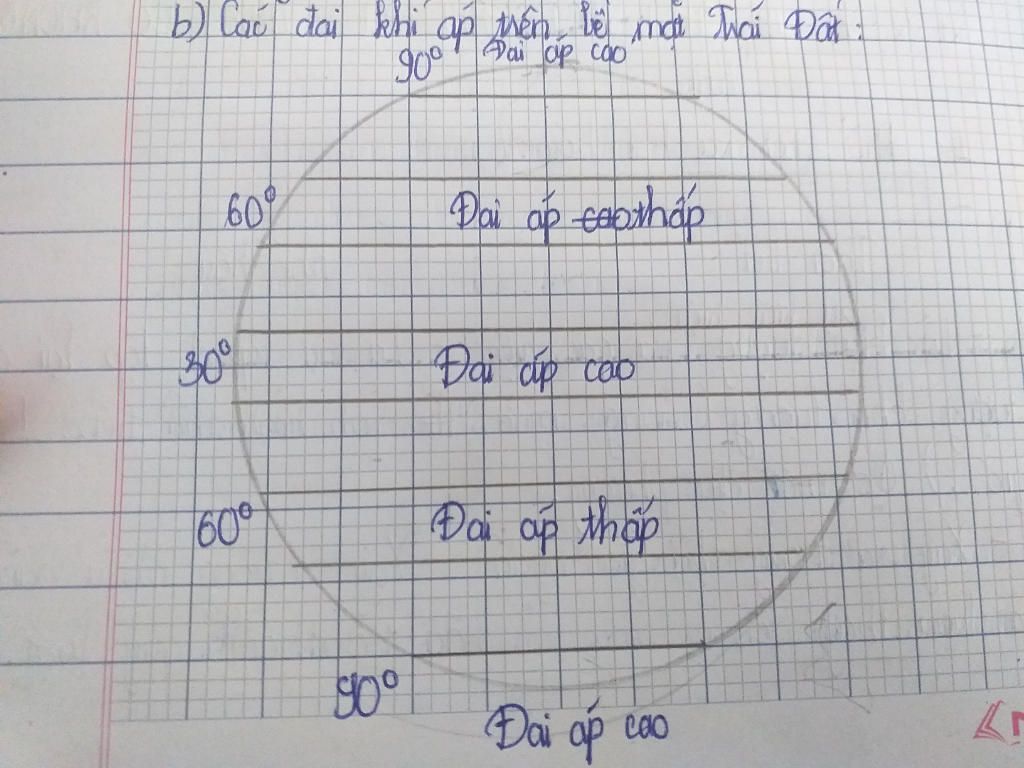 b) Các đai khí áp trên bề mặt Trái Đất:
90° Đai áp cao
60° Đai áp cao thấp
30° Đai áp cao
60° Đai áp thấp
90°
Đai áp cao